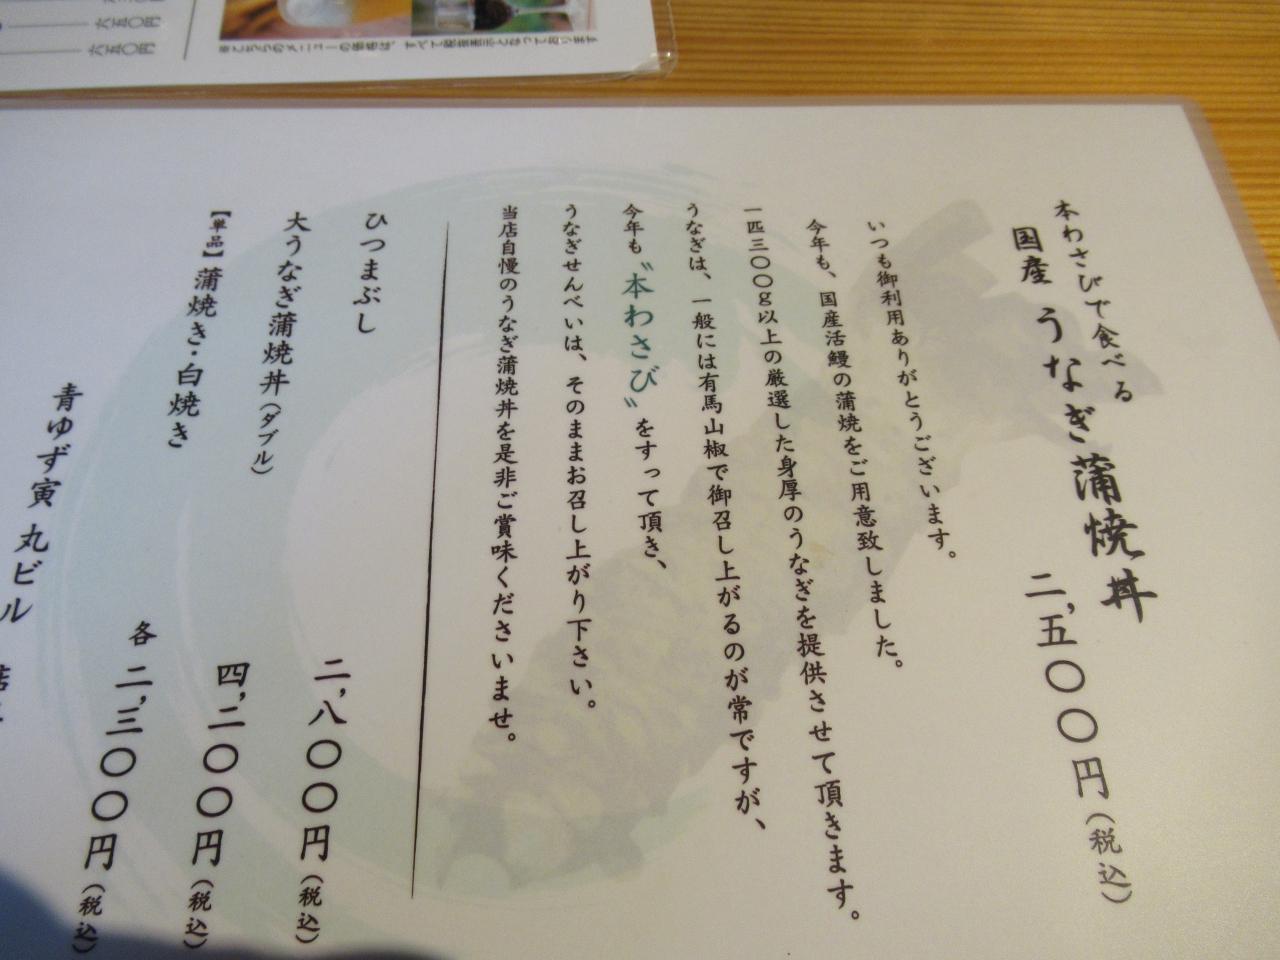 六五〇円
六五〇円
※こちらのメニューの価格は、すべて税抜表示となっております
本わさびで食べる
国産 うなぎ蒲焼丼
二,五〇〇円(税込)
いつも御利用ありがとうございます。
今年も、国産活鰻の蒲焼をご用意致しました。
一匹三〇〇g以上の厳選した身厚のうなぎを提供させて頂きます。
うなぎは、一般には有馬山椒で御召し上がるのが常ですが、
今年も〝本わさび〟をすって頂き、
うなぎせんべいは、そのままお召し上がり下さい。
当店自慢のうなぎ蒲焼丼を是非ご賞味くださいませ。
ひつまぶし 二,八〇〇円(税込)
大うなぎ蒲焼丼(ダブル) 四,二〇〇円(税込)
【単品】蒲焼き・白焼き 各 二,三〇〇円(税込)
青ゆず寅 丸ビル